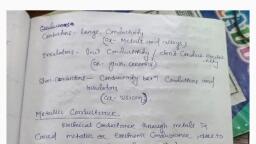 Conductance
Conductors - Large Conductivity
(ex- Metals and alloys)
Insulators - Don't Conductivity / don't Conduct
(ex- glass, ceramics)
Semi-Conductors - Conductivity betn Conductors and
insulators
(ex- silicon)
Metallic Conductance
Electrical Conductance through metals is
Called metallic or Electronic Conductance, due to